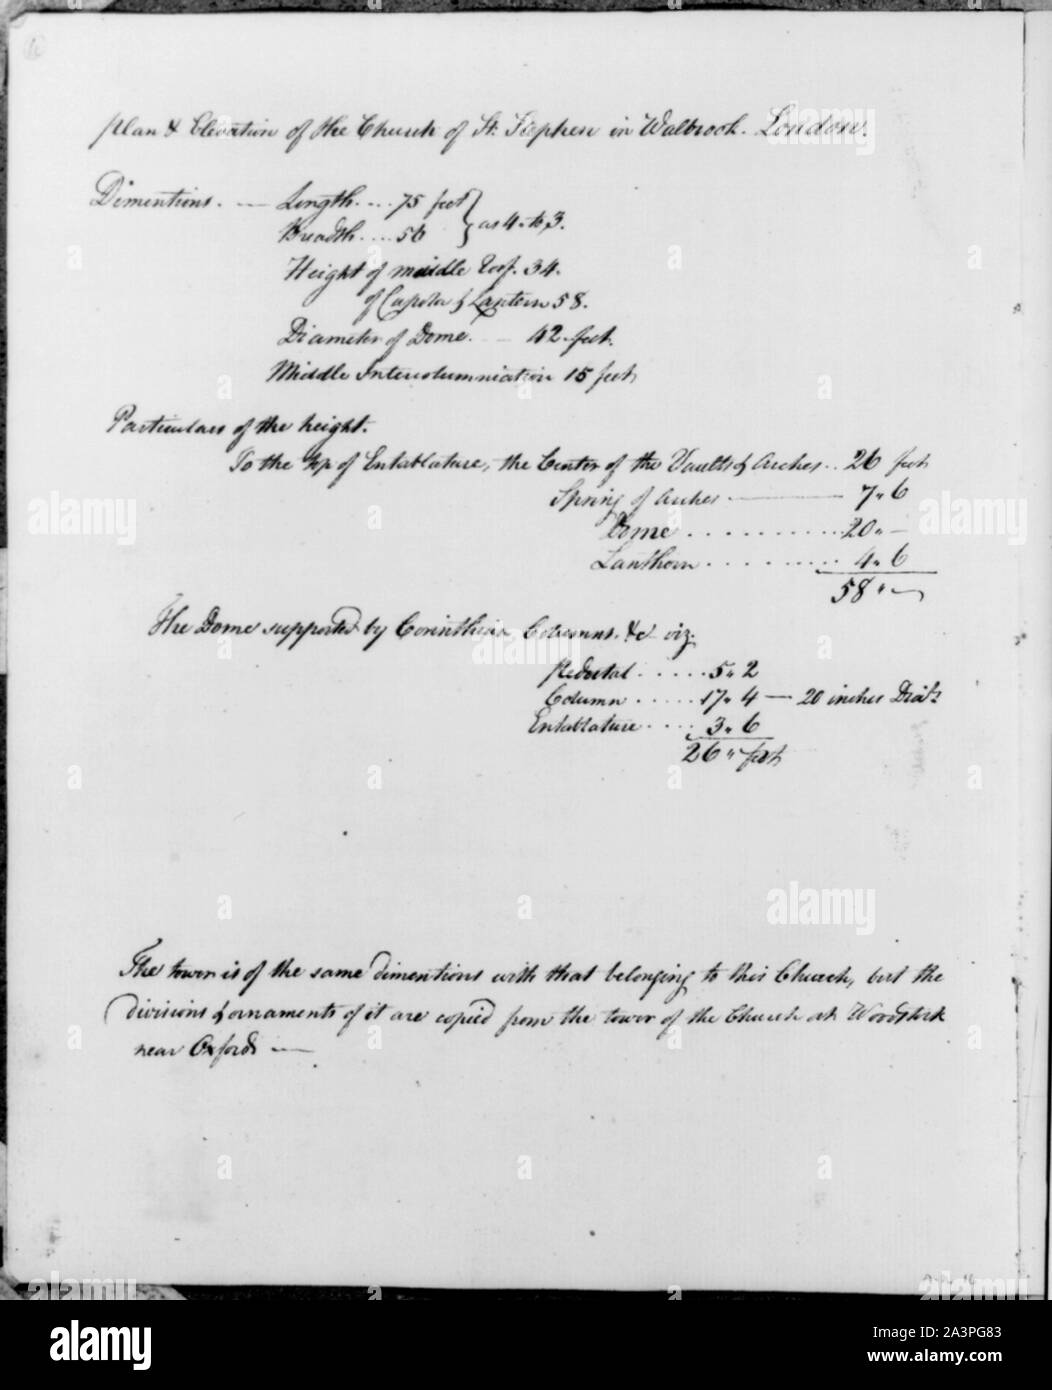 Plan & Elevation of the Church of St: Stephen in Walbrook. London.
Dimentions. — Length. ... 75 feet } as 4 to 3.
Breadth. ... 56
Height of middle Roof. 34.
of Cupola & Lantern 58.
Diameter of Dome. — 42 feet.
Middle Intercolumniation 15 feet
Particulars of the height.
To the top of Entablature, the Center of the Vaults & Arches .. 26 feet
Spring of Arches — 7" 6
Dome .......... 20" —
Lanthorn ......... 4" 6
58 "
The Dome supported by Corinthian Columns. &c viz.
Pedestal ..... 5" 2
Column ..... 17" 4 — 20 inches Diatr.
Entablature .... 3" 6
26 " feet
The tower is of the same dimentions with that belonging to this Church, but the
divisions & ornaments of it are copied from the tower of the Church at Woodstock
near Oxford —
alamy
a
Image ID: 2A3PG83
www.alamy.com